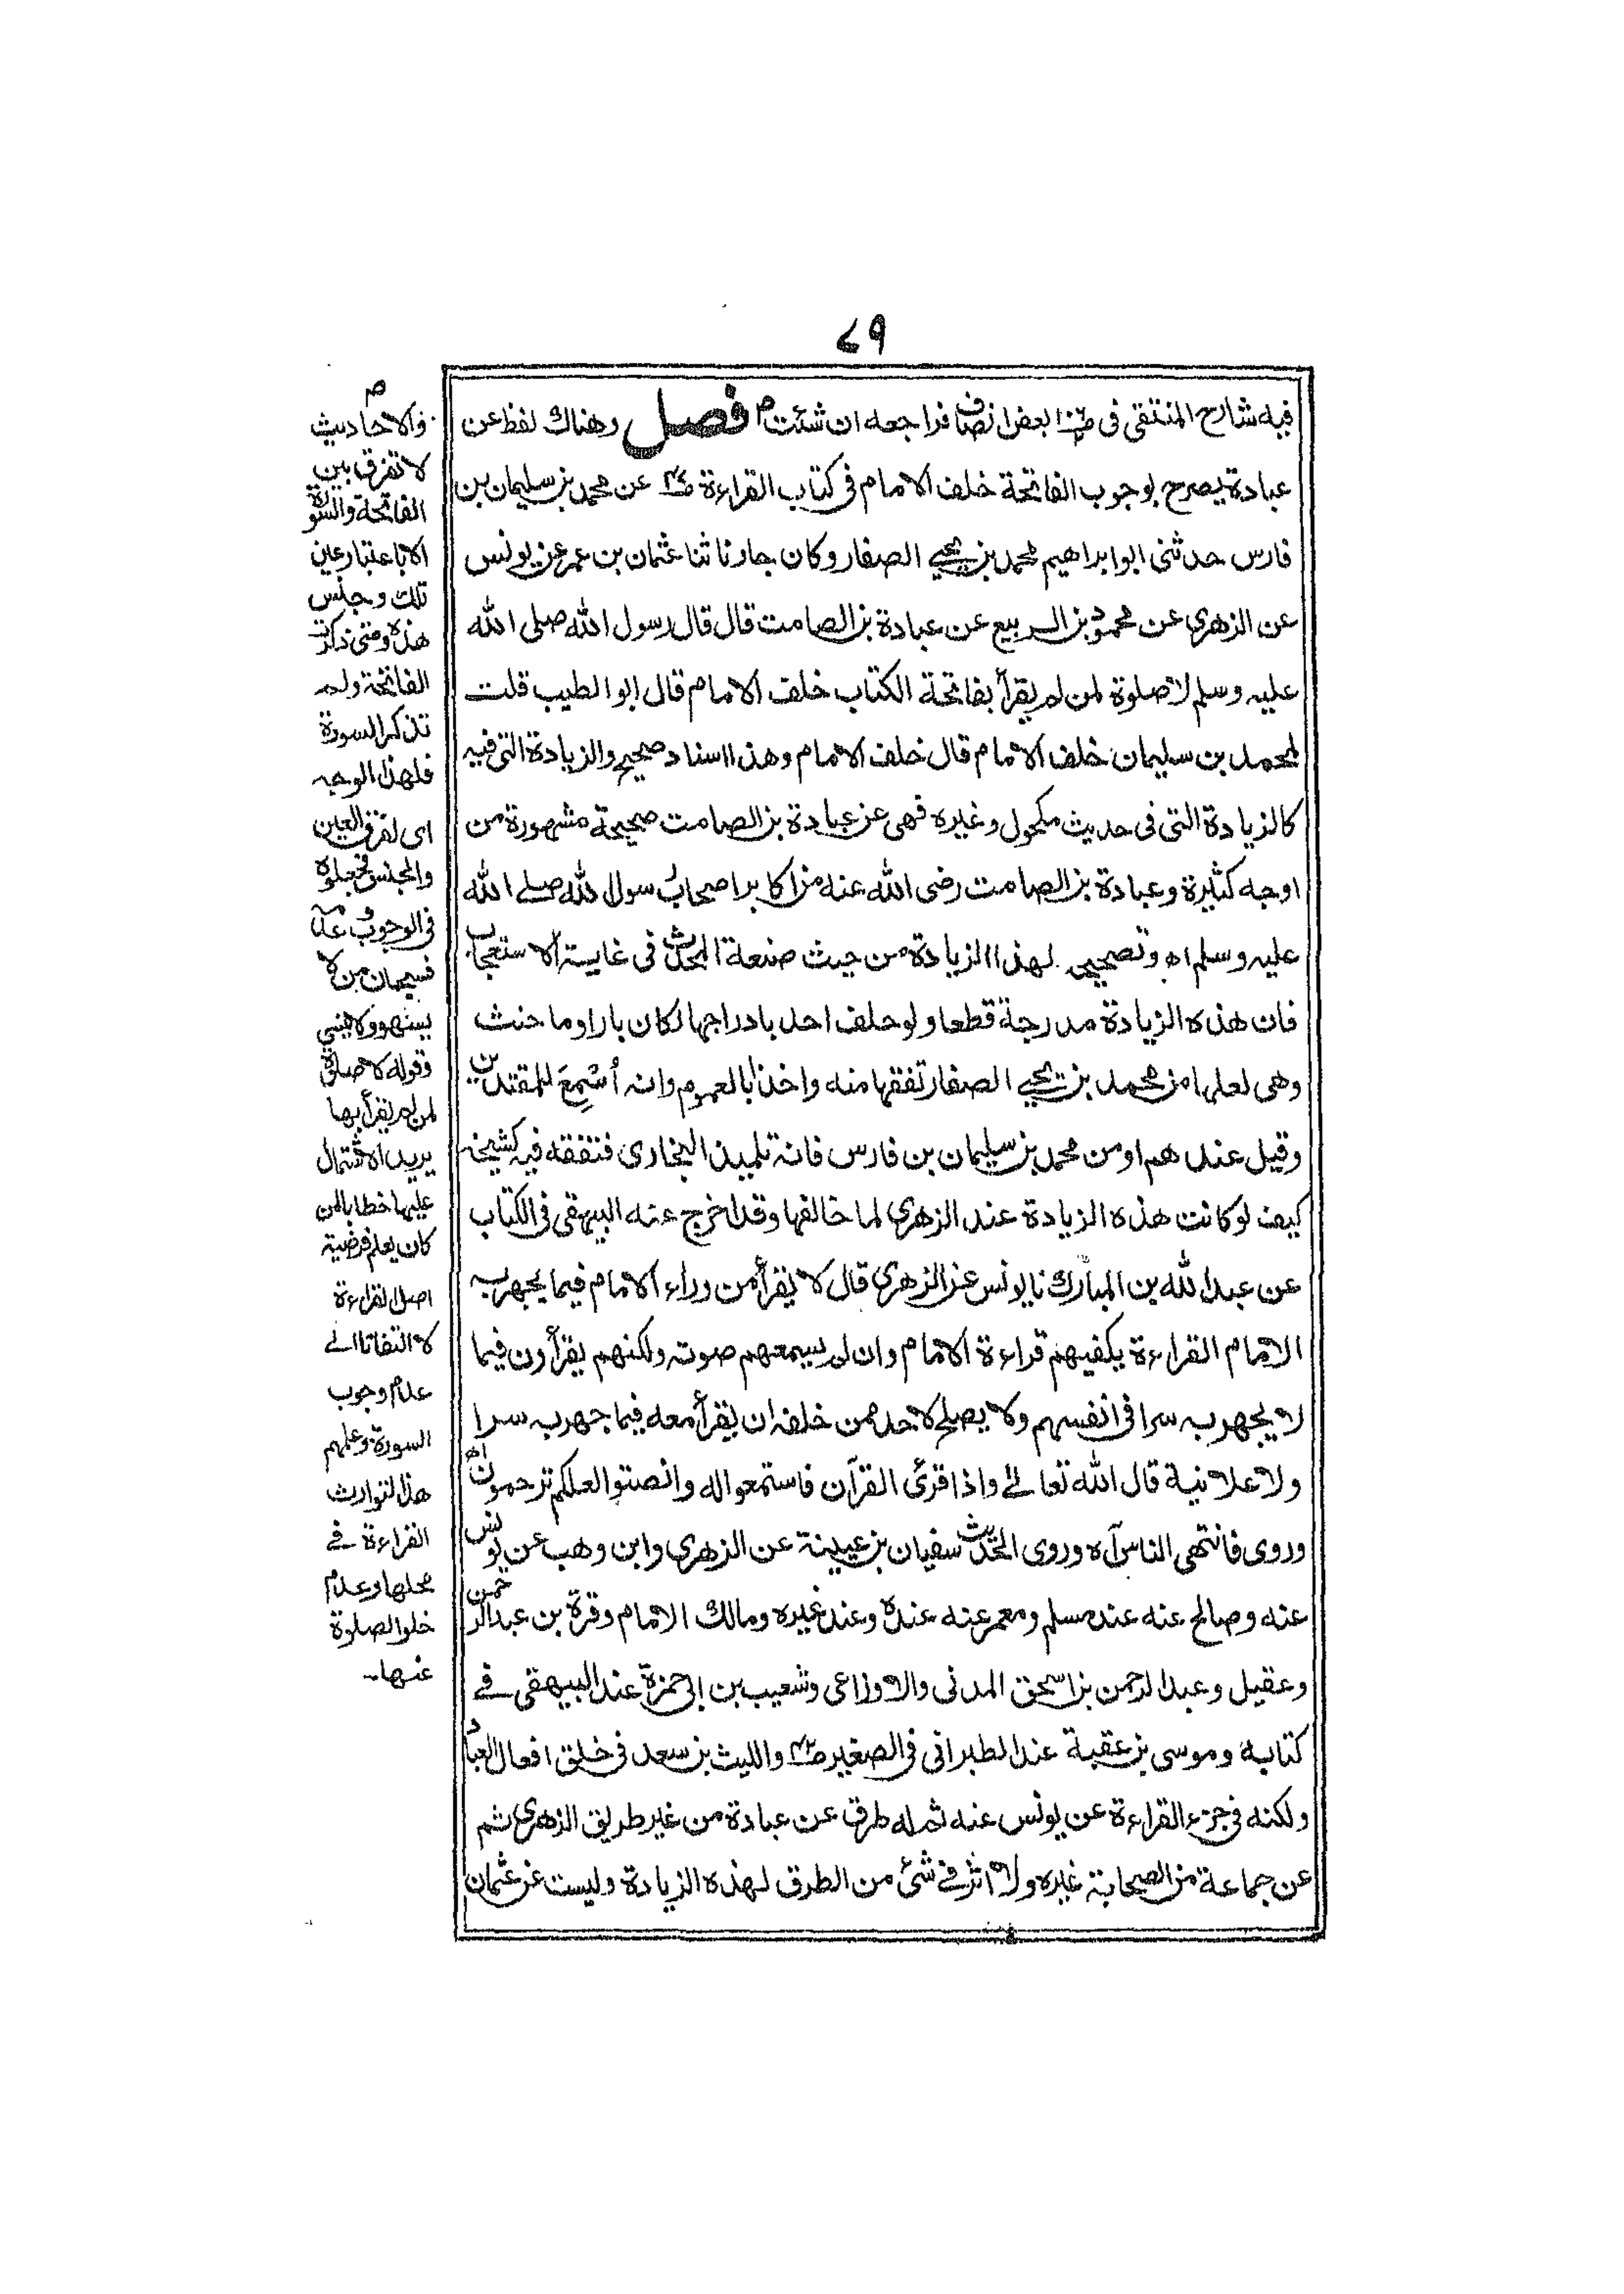 ٧٩
فيه شارح المنتقى فى بعض انصاف فراجعه ان شئت م فصل وهناك لفظ عن
عبادة يصرح بوجوب الفاتحة خلف الامام فى كتاب القراءة عن محمد بن سليمان بن
فارس حدثنى ابو ابراهيم محمد بن يحيى الصفار وكان جارنا ثنا عثمان بن عمر عن يونس
عن الزهرى عن محمود بن الربيع عن عبادة بن الصامت قال قال رسول الله صلى الله
عليه وسلم لا صلوة لمن لم يقرأ بفاتحة الكتاب خلف الامام قال ابو الطيب قلت
لمحمد بن سليمان خلف الامام قال خلف الامام وهذا اسناد صحيح والزيادة التى فيه
كالزيادة التى فى حديث مكحول وغيره فهى عن عبادة بن الصامت صحيحة مشهورة من
اوجه كثيرة وعبادة بن الصامت رضى الله عنه من اكابر اصحاب رسول الله صلے الله
عليه وسلم اھ وتصحيحه لهذا الزيادة من حيث صنعة الحديث فى غاية الاستعجاب
فان هذه الزيادة مدرجة قطعا ولو حلف احد بادراجها لكان بارا وما حنث
وهى لعلها من محمد بن يحيے الصفار تفقها منه واخذا بالعموم وانه أُسْمِعَ للمقتدين
وقيل عندهم او من محمد بن سليمان بن فارس فانه تلميذ البخارى فتفقه فيه كشيخه
كيف لو كانت هذه الزيادة عند الزهرى لما خالفها وقد اخرج عنه البيهقى فى الكتاب
عن عبد الله بن المبارك نا يونس عن الزهرى قال لا يقرأ من وراء الامام فيما يجهر به
الامام القراءة يكفيهم قراءة الامام وان لم يسمعهم صوته ولكنهم يقرأون فيما
لا يجهر به سرا فى انفسهم ولا يصلح لاحد ممن خلفه ان يقرأ معه فيما جهر به سرا
ولا علانية قال الله تعالے واذا قرئ القرآن فاستمعوا له وانصتوا لعلكم ترحمون اھ
وروى فانتهى الناس آه وروى الحديث سفيان بن عيينة عن الزهرى وابن وهب عن يونس
عنه وصالح عنه عند مسلم ومعمر عنه عنده وعند غيره ومالك الامام وقرة بن عبد الرحمن
وعقيل وعبد الرحمن بن اسحق المدنى والاوزاعى وشعيب بن ابى حمزة عند البيهقى فے
كتابه وموسى بن عقبة عند الطبرانى فى الصغير والليث بن سعد فى خلق افعال العباد
ولكنه فى جزء القراءة عن يونس عنه ثم له طرق عن عبادة من غير طريق الزهرى ثم
عن جماعة من الصحابة غيره ولا اثر فے شئ من الطرق لهذه الزيادة وليست عن عثمان
م
والاحاديث
لا تفرق بين
الفاتحة والسورة
الا باعتبار عين
تلك وجنس
هذه ومتى ذكرت
الفاتحة ولم
تذكر السورة
فلهذا الوجه
اى لفرق العين
والجنس فجعلوه
فى الوجوب وعدمه
فسبحان من لا
يسهو ولا ينسى
وقوله لا صلوة
لمن لم يقرأ بها
يريد الاشتمال
عليها خطابا لمن
كان يعلم فرضية
اصل القراءة
لا التفاتا الے
عدم وجوب
السورة وعلمهم
هذا لتوارث
القراءة فے
محلها وعدم
خلو الصلوة
عنها۔